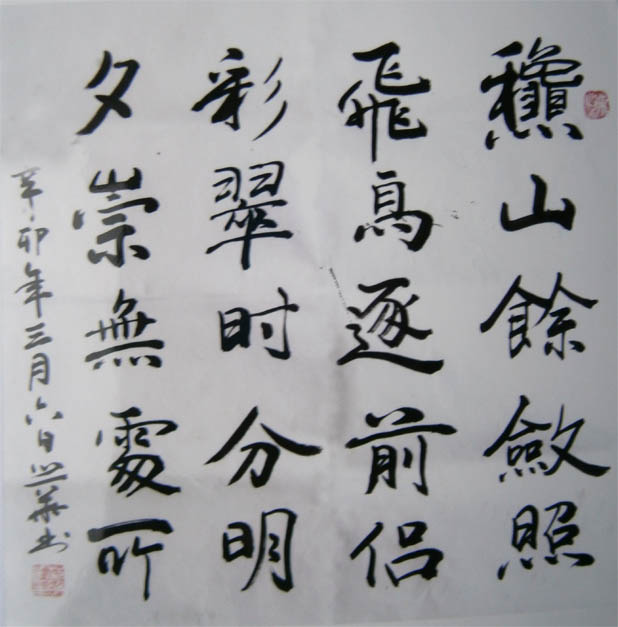 龝山餘斂照
飛鳥逐前侣
彩翠时分明
夕崇無處所
辛卯年三月六日華书